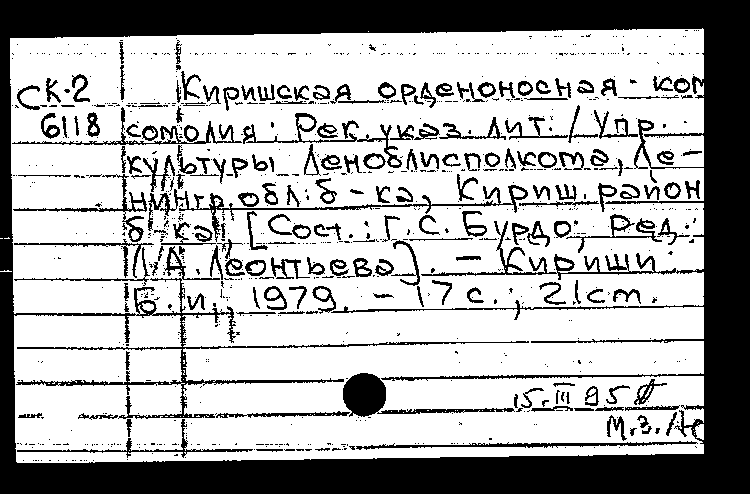 СК-2 Киришская орденоносная ком
6118 сомолия: Рек. указ. лит. / Упр.
культуры Леноблисполкома, Ле-
нингр. обл. б-ка, Кириш. район
б-ка; [Сост.: Г.С. Бурдо; Ред.:
Л.А. Леонтьева]. - Кириши:
Б.и., 1979. - 17 с.; 21cm.
15.III 85
М.З. Ле